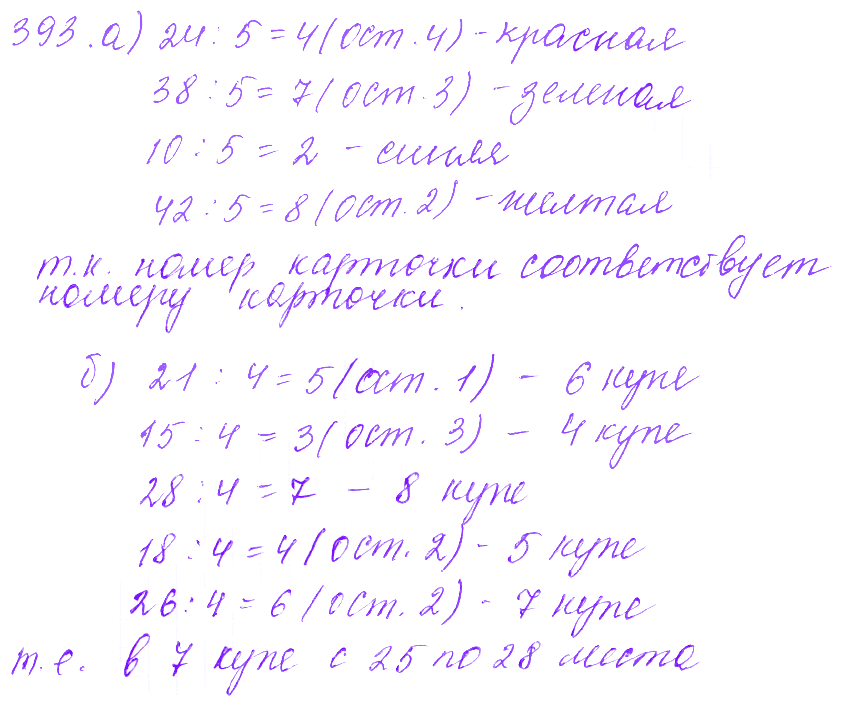 393. а) 24 : 5 = 4 (ост. 4) - красная
38 : 5 = 7 (ост. 3) - зеленая
10 : 5 = 2 - синяя
42 : 5 = 8 (ост. 2) - желтая
т.к. номер карточки соответствует
номеру карточки.
б) 21 : 4 = 5 (ост. 1) - 6 купе
15 : 4 = 3 (ост. 3) - 4 купе
28 : 4 = 7 - 8 купе
18 : 4 = 4 (ост. 2) - 5 купе
26 : 4 = 6 (ост. 2) - 7 купе
т.е. в 7 купе с 25 по 28 места